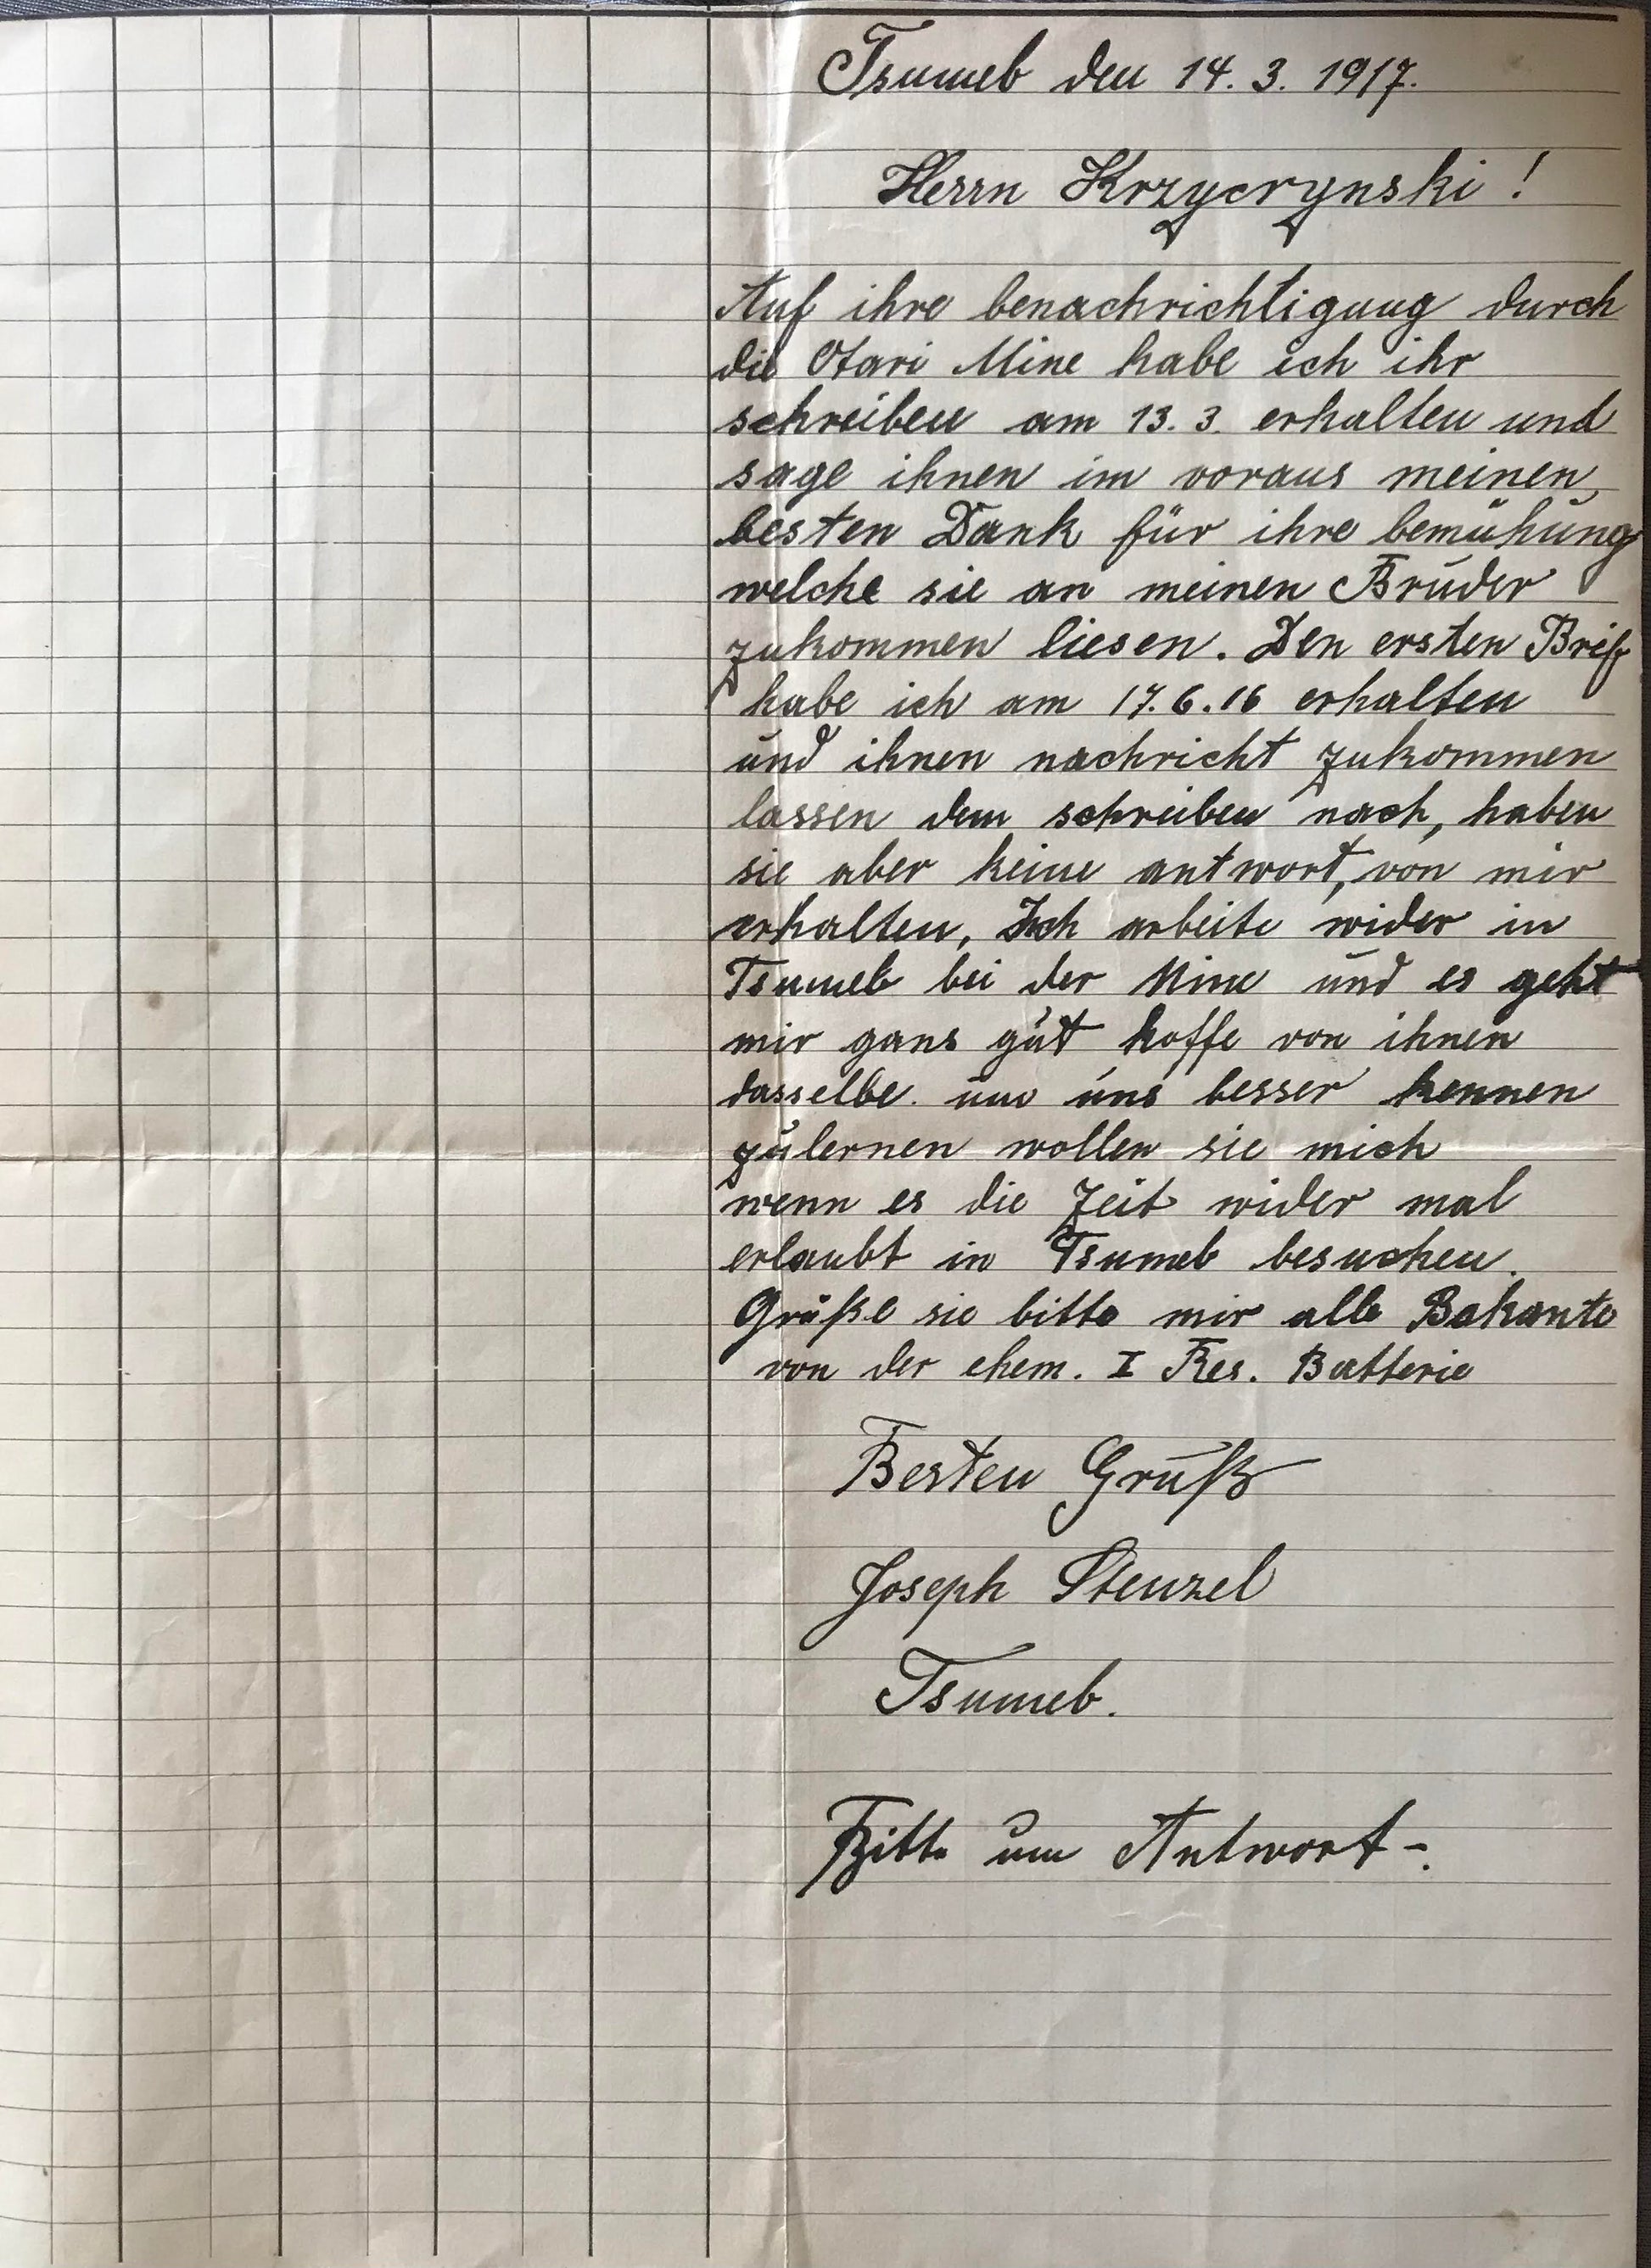 Tsumeb den 14. 3. 1917.
Herrn Krzyczynski !
Auf ihre benachrichtigung durch
die Otavi Mine habe ich ihr
schreiben am 13. 3. erhalten und
sage ihnen im voraus meinen
besten Dank für ihre bemühung
welche sie an meinen Bruder
zukommen liesen. Den ersten Brif
habe ich am 17. 6. 16 erhalten
und ihnen nachricht zukommen
lassen dem schreiben nach, haben
sie aber keine antwort, von mir
erhalten, Ich arbeite wider in
Tsumeb bei der Mine und es geht
mir gans gut hoffe von ihnen
dasselbe. um uns besser kennen
zulernen wollen sie mich
wenn es die Zeit wider mal
erlaubt in Tsumeb besuchen.
Grüße sie bitte mir alle Bekante
von der ehem. I Res. Batterie
Besten Gruß
Joseph Stenzel
Tsumeb.
Bitte um Antwort-.